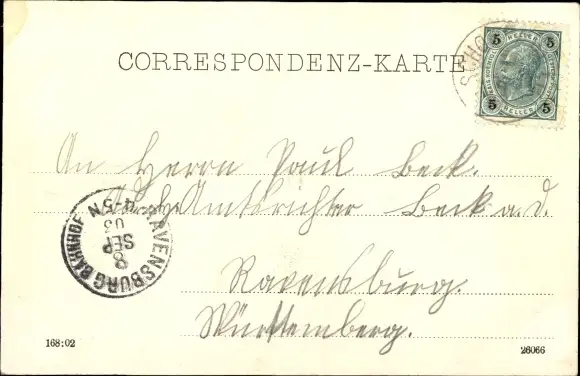 CORRESPONDENZ-KARTE
5 HELLER 5
5 HELLER 5
An Herrn Paul Beck.
Amtsrichter Beck a. d.
RAVENSBURG BAHNHOF
8
SEP
03
4-5N
Ravensburg.
Württemberg.
168:02
26066